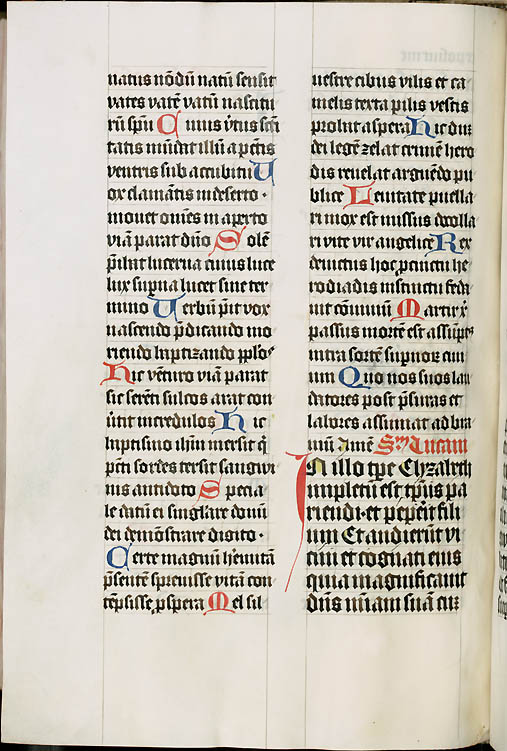 natus nōdū natū sensit
vates vatē vatūm nascitu
rū spū Cuius v̄tus scī
tatis mūdat illū a pctīs
ventris sub accubitu V
ox clamātis in deserto ·
mouet oues in aperto
viā parat dn̄o Solē
p̄ilat lucerna cuius luce
lux sup̄na lucet sine ter
mino Verbū p̄it vox
nascendo p̄dicando mo
riendo baptizando
Hic venturo viā parat
sic serēs sulcos arat con
ūtit incredulos Hic
baptismo ihm̄ mersit q̄
pctī sordes tersit sangui
nis antidoto Specia
le datū ei singlāre donū
dei demōstrare digito ·
Certe magnū hēuitā
p̄sentē spreuisse vitā con
tēpsisse pspera Mel sil
uestre cibus vilis et ca
melis texta pilis vestis
prolut aspera Hic dux
dei legē zelat crimē hero
dis reuelat arguēdo pu
blice Leuitate puella
ri mox est missus decolla
ri vite vir angelice Rex
deuictus hoc pūictu he
rodiadis instinctu feda
uit conuiuiū Martir xp̄i
passus mortē est assūptus
intra sortē supnor ciui
um Quo nos suos lau
datores post p̄suras et
labores assumat ad bra
uiū Amē Sm̄ Lucam
In illo tp̄e Elyzabeth
impletū est tp̄us pa
riendi · et pepeit fili
um Et audierūt vi
cini et cognati eius
quia magnificauit
dn̄s miam̄ suā cū